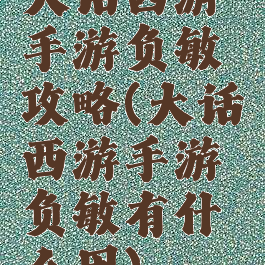 大话西游
手游负敏
攻略(大话
西游手游
负敏有什
么用)